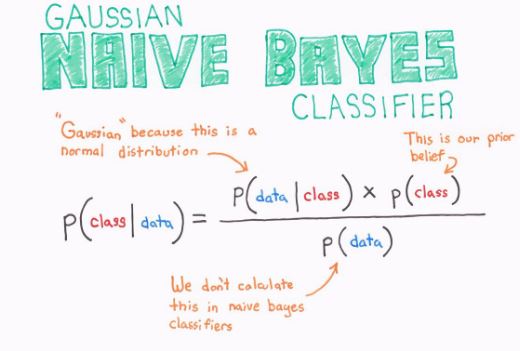 GAUSSIAN
NAIVE BAYES
CLASSIFIER
"Gaussian" because this is a
normal distribution
This is our prior
belief
p(data | class) × p(class)
p(class | data) =
p(data)
We don't calculate
this in naive bayes
classifiers